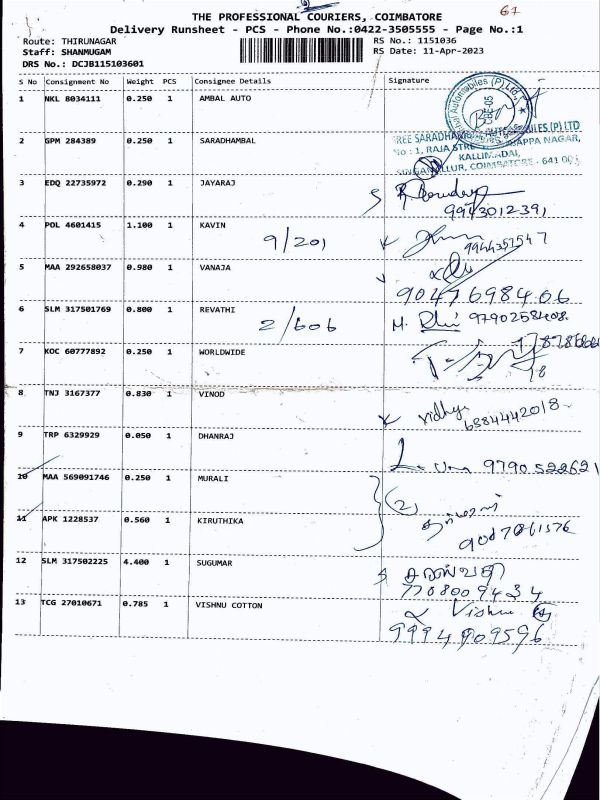 67
THE PROFESSIONAL COURIERS, COIMBATORE
Delivery Runsheet - PCS - Phone No.:0422-3505555 - Page No.:1
Route: THIRUNAGAR
RS No.: 1151036
Staff: SHANMUGAM
RS Date: 11-Apr-2023
DRS No.: DCJB115103601
S No Consignment No Weight PCS Consignee Details Signature
1 NKL 8034111 0.250 1 AMBAL AUTO
2 GPM 284389 0.250 1 SARADHAMBAL
SINGANALLUR, COIMBATORE - 641 005
3 EDQ 22735972 0.290 1 JAYARAJ
9943012391
4 POL 4601415 1.100 1 KAVIN 9/201
9944357547
5 MAA 292658037 0.980 1 VANAJA
9047698406
6 SLM 317501769 0.800 1 REVATHI 2/606 9790258408
7 KOC 60777892 0.250 1 WORLDWIDE
8 TNJ 3167377 0.830 1 VINOD Vidhya
6884442018
9 TRP 6329929 0.050 1 DHANRAJ
9790522621
10 MAA 569091746 0.250 1 MURALI (2)
11 APK 1228537 0.560 1 KIRUTHIKA
12 SLM 317502225 4.400 1 SUGUMAR
7708009434
13 TCG 27010671 0.785 1 VISHNU COTTON Vishnu
9994909596